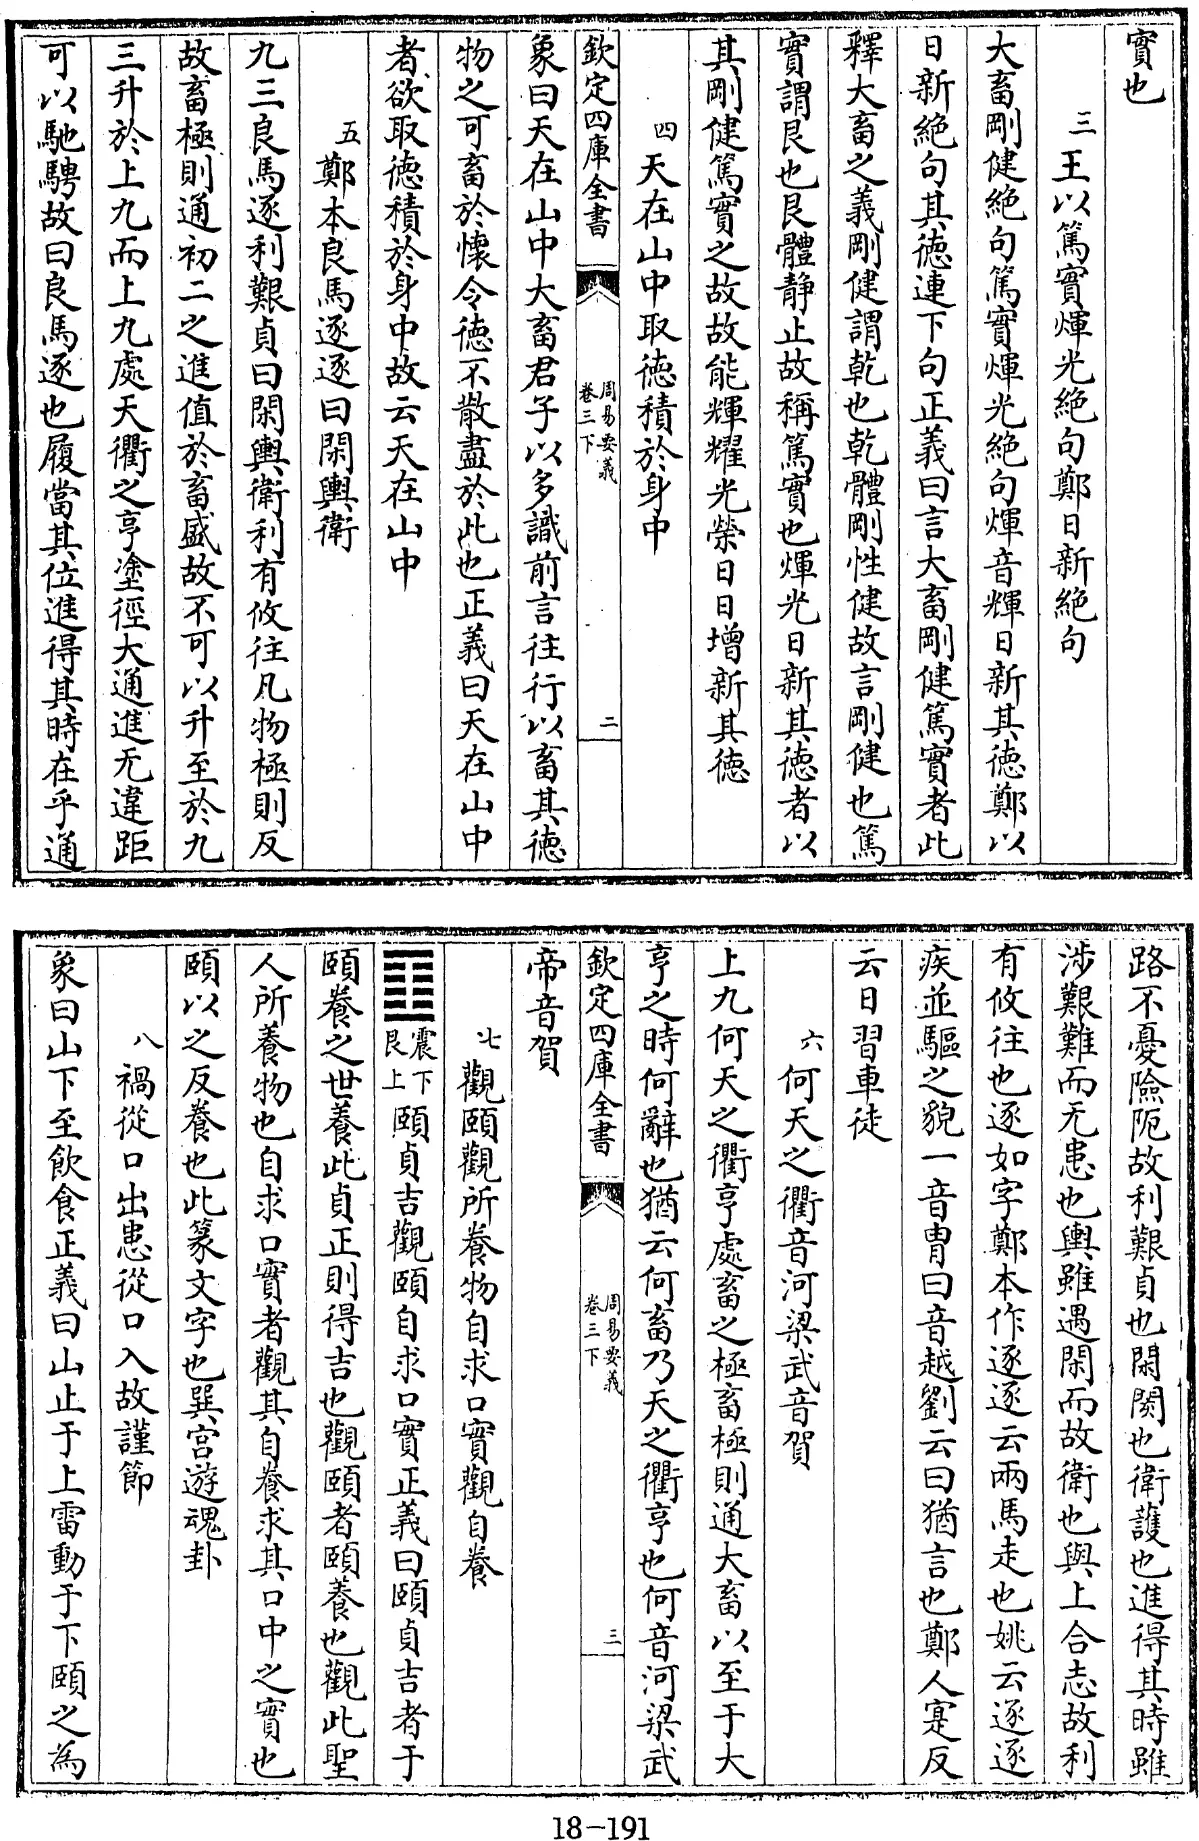 實也
三王以篤實煇光絶句鄭日新絶句
大畜剛健絶句篤實煇光絶句煇音輝日新其徳鄭以
日新絶句其徳連下句正義曰言大畜剛健篤實者此
釋大畜之義剛健謂乾也乾體剛性健故言剛健也篤
實謂艮也艮體靜止故稱篤實也煇光日新其徳者以
其剛健篤實之故故能輝耀光榮日日增新其徳
四天在山中取徳積於身中
欽定四庫全書
周易要義
卷三下
二
象曰天在山中大畜君子以多識前言往行以畜其徳
物之可畜於懷令徳不散盡於此也正義曰天在山中
者欲取徳積於身中故云天在山中
五鄭本良馬逐逐曰閑輿衛
九三良馬逐利艱貞曰閑輿衛利有攸往凡物極則反
故畜極則通初二之進值於畜盛故不可以升至於九
三升於上九而上九處天衢之亨塗徑大通進无違距
可以馳騁故曰良馬逐也履當其位進得其時在乎通
路不憂險阨故利艱貞也閑閡也衛護也進得其時雖
涉艱難而无患也輿雖遇閑而故衛也與上合志故利
有攸往也逐如字鄭本作逐逐云兩馬走也姚云逐逐
疾並驅之貌一音胄曰音越劉云曰猶言也鄭人寔反
云日習車徒
六何天之衢音河梁武音賀
上九何天之衢亨處畜之極畜極則通大畜以至于大
亨之時何辭也猶云何畜乃天之衢亨也何音河梁武
欽定四庫全書
周易要義
卷三下
三
帝音賀
七觀頤觀所養物自求口實觀自養
䷚震下艮上頤貞吉觀頤自求口實正義曰頤貞吉者于
頤養之世養此貞正則得吉也觀頤者頤養也觀此聖
人所養物也自求口實者觀其自養求其口中之實也
頤以之反養也此篆文字也巽宫遊魂卦
八禍從口出患從口入故謹節
象曰山下至飲食正義曰山止于上雷動于下頤之為
18-191